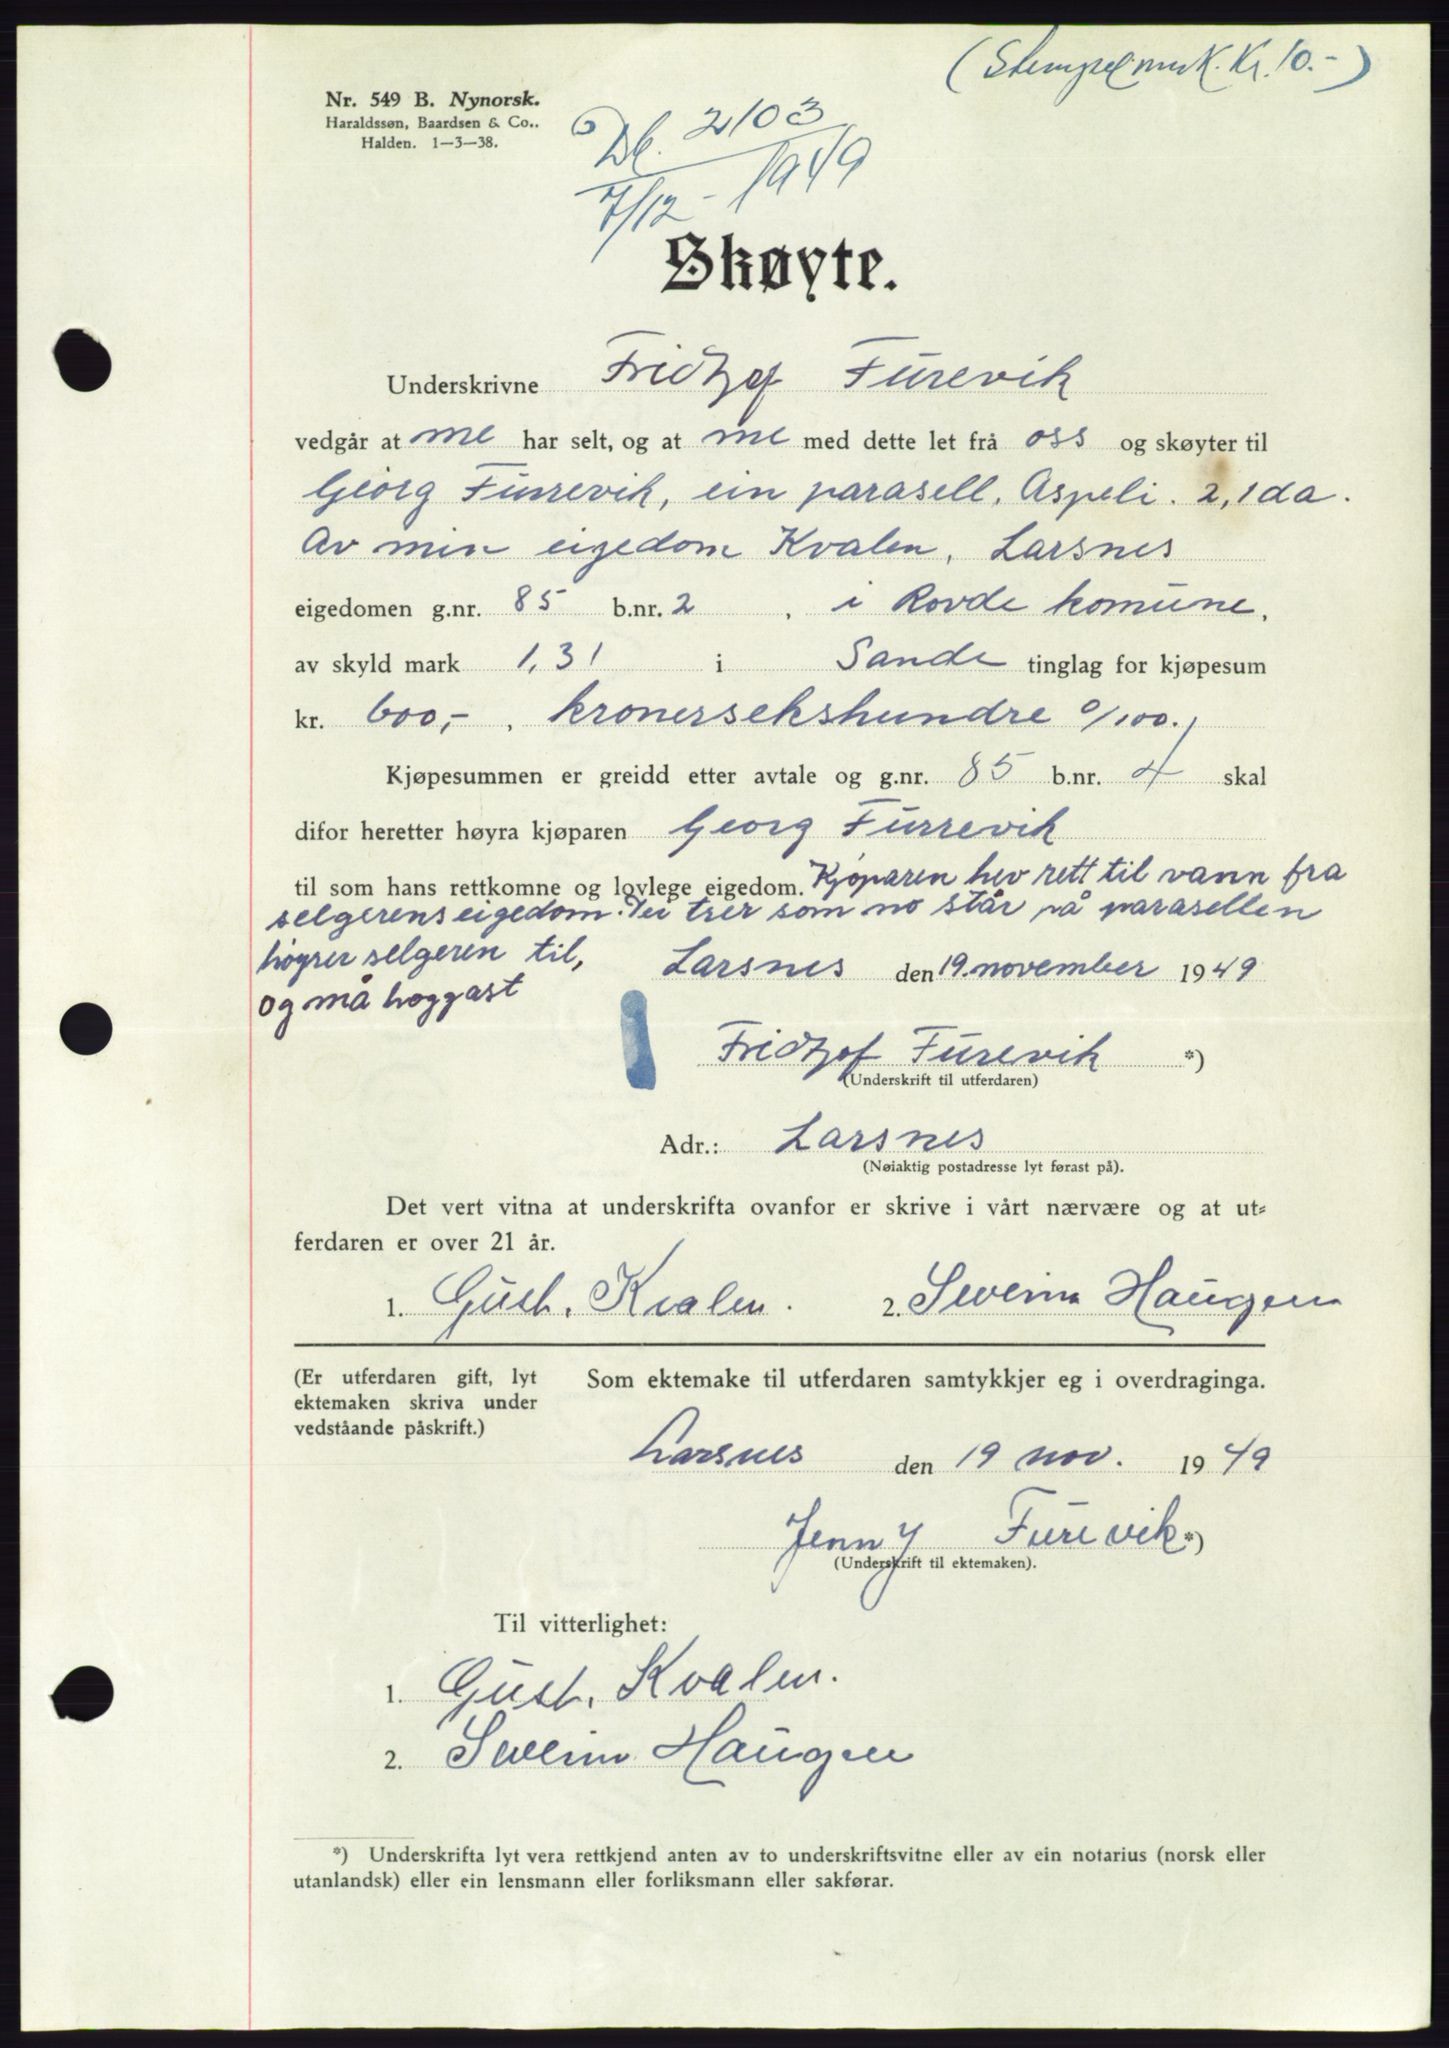 (Stempelmerk. Kr. 10.-)
Nr. 549 B. Nynorsk.
Haraldssøn, Baardsen & Co..
Halden. 1—3—38.
Db. 2103
7/12 - 1949
Skøyte.
Underskrivne Fridtjof Furevik
vedgår at me har selt, og at me med dette let frå oss og skøyter til
Georg Furrevik, ein parasell, Aspeli. 2,1 da.
Av min eigedom Kvalen, Larsnes
eigedomen g.nr. 85 b.nr. 2, i Rovde komune,
av skyld mark 1,31 i Sande tinglag for kjøpesum
kr. 600,-, kronersekshundre 0/100.
Kjøpesummen er greidd etter avtale og g.nr. 85 b.nr. 4 skal
difor heretter høyra kjøparen Georg Furrevik
til som hans rettkomne og lovlege eigedom. Kjøparen hev rett til vann fra
selgerens eigedom. Dei trer som no står på parasellen
høyrer selgeren til,
og må hoggast
Larsnes den 19. november 1949
Fridtjof Furevik *)
(Underskrift til utferdaren)
Adr.: Larsnes
(Nøiaktig postadresse lyt førast på).
Det vert vitna at underskrifta ovanfor er skrive i vårt nærvære og at ut=
ferdaren er over 21 år.
1. Gust. Kvalen. 2. Severin Haugen
(Er utferdaren gift, lyt
ektemaken skriva under
vedståande påskrift.)
Som ektemake til utferdaren samtykkjer eg i overdraginga.
Larsnes den 19 nov. 1949
Jenny Furevik *)
(Underskrift til ektemaken).
Til vitterlighet:
1. Gust. Kvalen.
2. Severin Haugen
*) Underskrifta lyt vera rettkjend anten av to underskriftsvitne eller av ein notarius (norsk eller
utanlandsk) eller ein lensmann eller forliksmann eller sakførar.